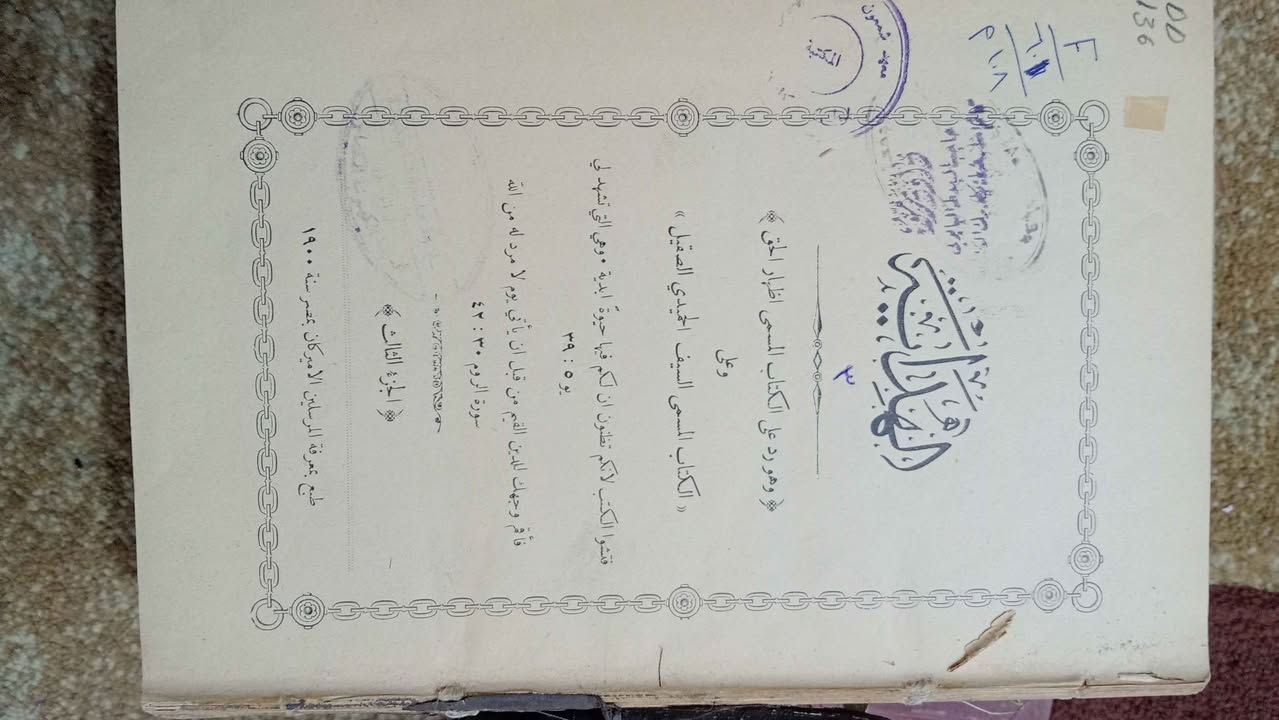 DD
136
F
٢١٠٨
معهد شمعون
الهداية
٣
﴿ وهو رد على الكتاب المسمى اظهار الحق ﴾
وعلى
« الكتاب المسمى السيف الحميدي الصقيل »
فتشوا الكتب لأنكم تظنون ان لكم فيها حيوةً ابدية ٠ وهي التي تشهد لي
يو ٥ : ٣٩
فأقم وجهك للدين القيم من قبل ان يأتي يوم لا مرد له من الله
سورة الروم ٣٠ : ٤٢
﴿ الجزء الثالث ﴾
طبع بمعرفة المرسلين الأميركان بمصر سنة ١٩٠٠